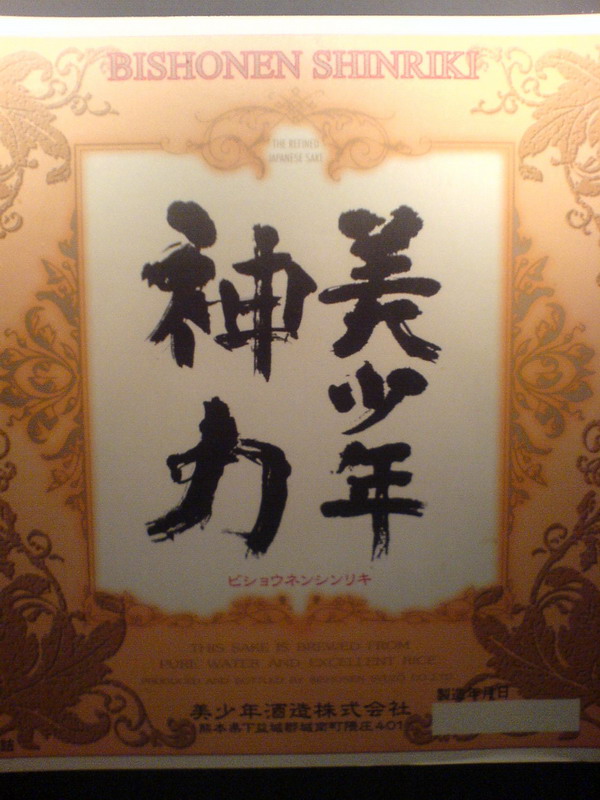 BISHONEN SHINRIKI
THE REFINED
JAPANESE SAKE
美少年
神力
ビショウネンシンリキ
THIS SAKE IS BREWED FROM
PURE WATER AND EXCELLENT RICE
PRODUCED AND BOTTLED BY BISHONEN SYUZO CO.,LTD.
美少年酒造株式会社
熊本県下益城郡城南町隈庄401
製造年月日
詰